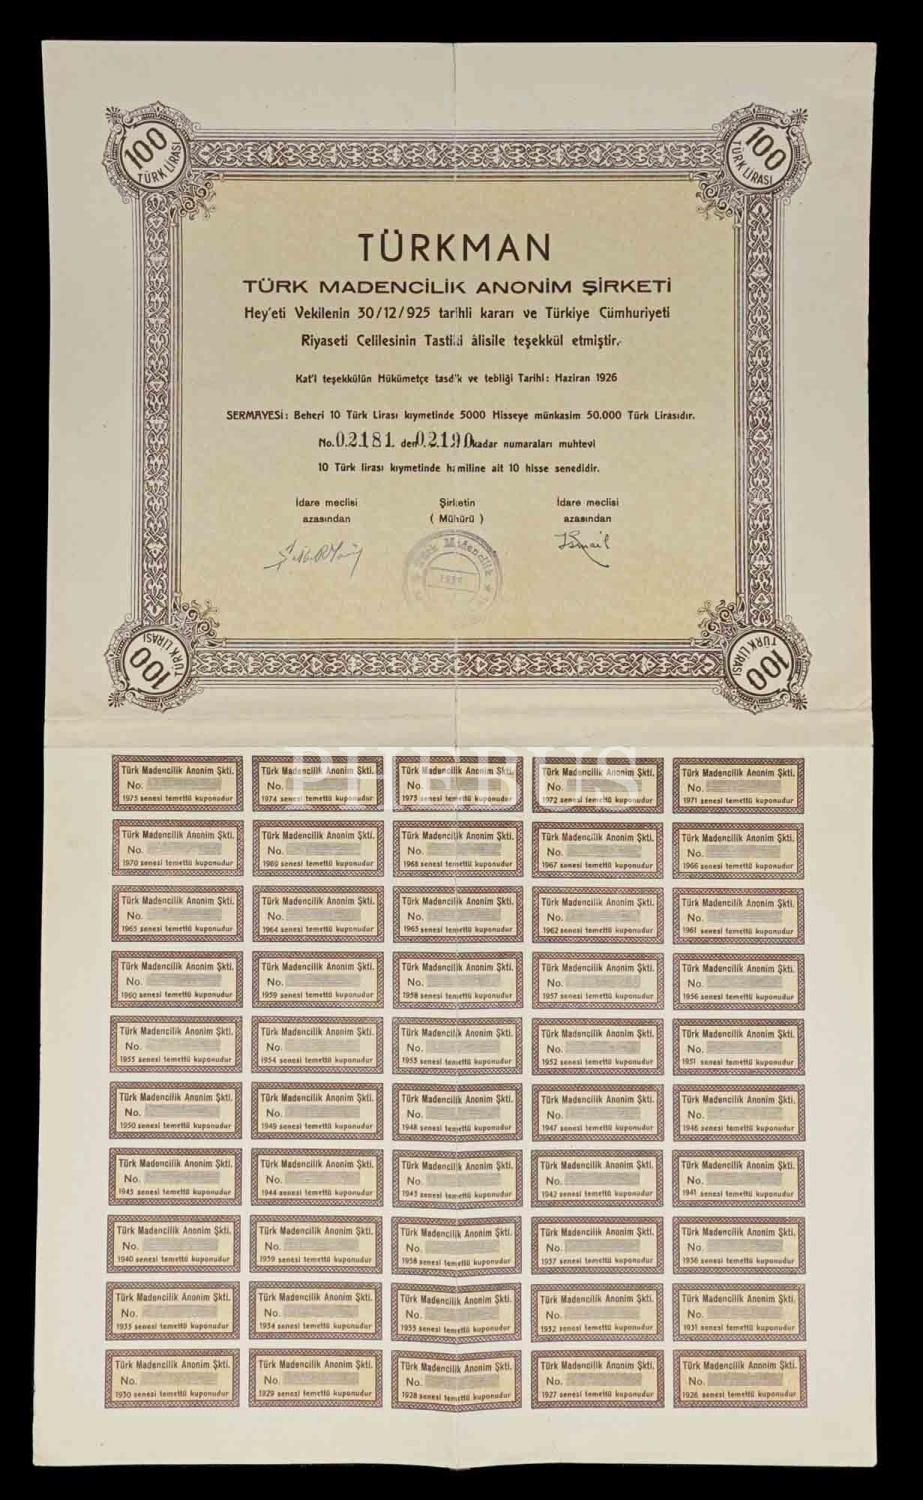 100 TÜRK LİRASI
100 TÜRK LİRASI
TÜRKMAN
TÜRK MADENCİLİK ANONİM ŞİRKETİ
Hey'eti Vekilenin 30/12/925 tarihli kararı ve Türkiye Cümhuriyeti
Riyaseti Celilesinin Tastiki âlisile teşekkül etmiştir.
Kat'î teşekkülün Hükümetçe tasd'k ve tebliği Tarihi: Haziran 1926
SERMAYESİ: Beheri 10 Türk Lirası kıymetinde 5000 Hisseye münkasim 50.000 Türk Lirasıdır.
No. 02181 den 02190 kadar numaraları muhtevi
10 Türk lirası kıymetinde hamiline ait 10 hisse senedidir.
İdare meclisi Şirketin İdare meclisi
azasından ( Mühürü ) azasından
Ismail
Türk Madencilik
100 TÜRK LİRASI
100 TÜRK LİRASI
PHEBUS
Türk Madencilik Anonim Şkti. Türk Madencilik Anonim Şkti. Türk Madencilik Anonim Şkti. Türk Madencilik Anonim Şkti. Türk Madencilik Anonim Şkti.
No. No. No. No. No.
1975 senesi temettü kuponudur 1974 senesi temettü kuponudur 1973 senesi temettü kuponudur 1972 senesi temettü kuponudur 1971 senesi temettü kuponudur
Türk Madencilik Anonim Şkti. Türk Madencilik Anonim Şkti. Türk Madencilik Anonim Şkti. Türk Madencilik Anonim Şkti. Türk Madencilik Anonim Şkti.
No. No. No. No. No.
1970 senesi temettü kuponudur 1969 senesi temettü kuponudur 1968 senesi temettü kuponudur 1967 senesi temettü kuponudur 1966 senesi temettü kuponudur
Türk Madencilik Anonim Şkti. Türk Madencilik Anonim Şkti. Türk Madencilik Anonim Şkti. Türk Madencilik Anonim Şkti. Türk Madencilik Anonim Şkti.
No. No. No. No. No.
1965 senesi temettü kuponudur 1964 senesi temettü kuponudur 1963 senesi temettü kuponudur 1962 senesi temettü kuponudur 1961 senesi temettü kuponudur
Türk Madencilik Anonim Şkti. Türk Madencilik Anonim Şkti. Türk Madencilik Anonim Şkti. Türk Madencilik Anonim Şkti. Türk Madencilik Anonim Şkti.
No. No. No. No. No.
1960 senesi temettü kuponudur 1959 senesi temettü kuponudur 1958 senesi temettü kuponudur 1957 senesi temettü kuponudur 1956 senesi temettü kuponudur
Türk Madencilik Anonim Şkti. Türk Madencilik Anonim Şkti. Türk Madencilik Anonim Şkti. Türk Madencilik Anonim Şkti. Türk Madencilik Anonim Şkti.
No. No. No. No. No.
1955 senesi temettü kuponudur 1954 senesi temettü kuponudur 1953 senesi temettü kuponudur 1952 senesi temettü kuponudur 1951 senesi temettü kuponudur
Türk Madencilik Anonim Şkti. Türk Madencilik Anonim Şkti. Türk Madencilik Anonim Şkti. Türk Madencilik Anonim Şkti. Türk Madencilik Anonim Şkti.
No. No. No. No. No.
1950 senesi temettü kuponudur 1949 senesi temettü kuponudur 1948 senesi temettü kuponudur 1947 senesi temettü kuponudur 1946 senesi temettü kuponudur
Türk Madencilik Anonim Şkti. Türk Madencilik Anonim Şkti. Türk Madencilik Anonim Şkti. Türk Madencilik Anonim Şkti. Türk Madencilik Anonim Şkti.
No. No. No. No. No.
1945 senesi temettü kuponudur 1944 senesi temettü kuponudur 1943 senesi temettü kuponudur 1942 senesi temettü kuponudur 1941 senesi temettü kuponudur
Türk Madencilik Anonim Şkti. Türk Madencilik Anonim Şkti. Türk Madencilik Anonim Şkti. Türk Madencilik Anonim Şkti. Türk Madencilik Anonim Şkti.
No. No. No. No. No.
1940 senesi temettü kuponudur 1939 senesi temettü kuponudur 1938 senesi temettü kuponudur 1937 senesi temettü kuponudur 1936 senesi temettü kuponudur
Türk Madencilik Anonim Şkti. Türk Madencilik Anonim Şkti. Türk Madencilik Anonim Şkti. Türk Madencilik Anonim Şkti. Türk Madencilik Anonim Şkti.
No. No. No. No. No.
1935 senesi temettü kuponudur 1934 senesi temettü kuponudur 1933 senesi temettü kuponudur 1932 senesi temettü kuponudur 1931 senesi temettü kuponudur
Türk Madencilik Anonim Şkti. Türk Madencilik Anonim Şkti. Türk Madencilik Anonim Şkti. Türk Madencilik Anonim Şkti. Türk Madencilik Anonim Şkti.
No. No. No. No. No.
1930 senesi temettü kuponudur 1929 senesi temettü kuponudur 1928 senesi temettü kuponudur 1927 senesi temettü kuponudur 1926 senesi temettü kuponudur